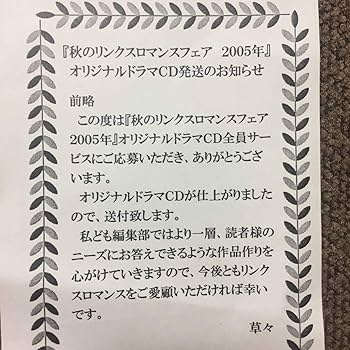 『秋のリンクスロマンスフェア　2005年』
オリジナルドラマCD発送のお知らせ
前略
　この度は『秋のリンクスロマンスフェア
2005年』オリジナルドラマCD全員サー
ビスにご応募いただき、ありがとうござ
います。
　オリジナルドラマCDが仕上がりました
ので、送付致します。
　私ども編集部ではより一層、読者様の
ニーズにお答えできるような作品作りを
心がけていきますので、今後ともリンク
スロマンスをご愛顧いただければ幸い
です。
草々